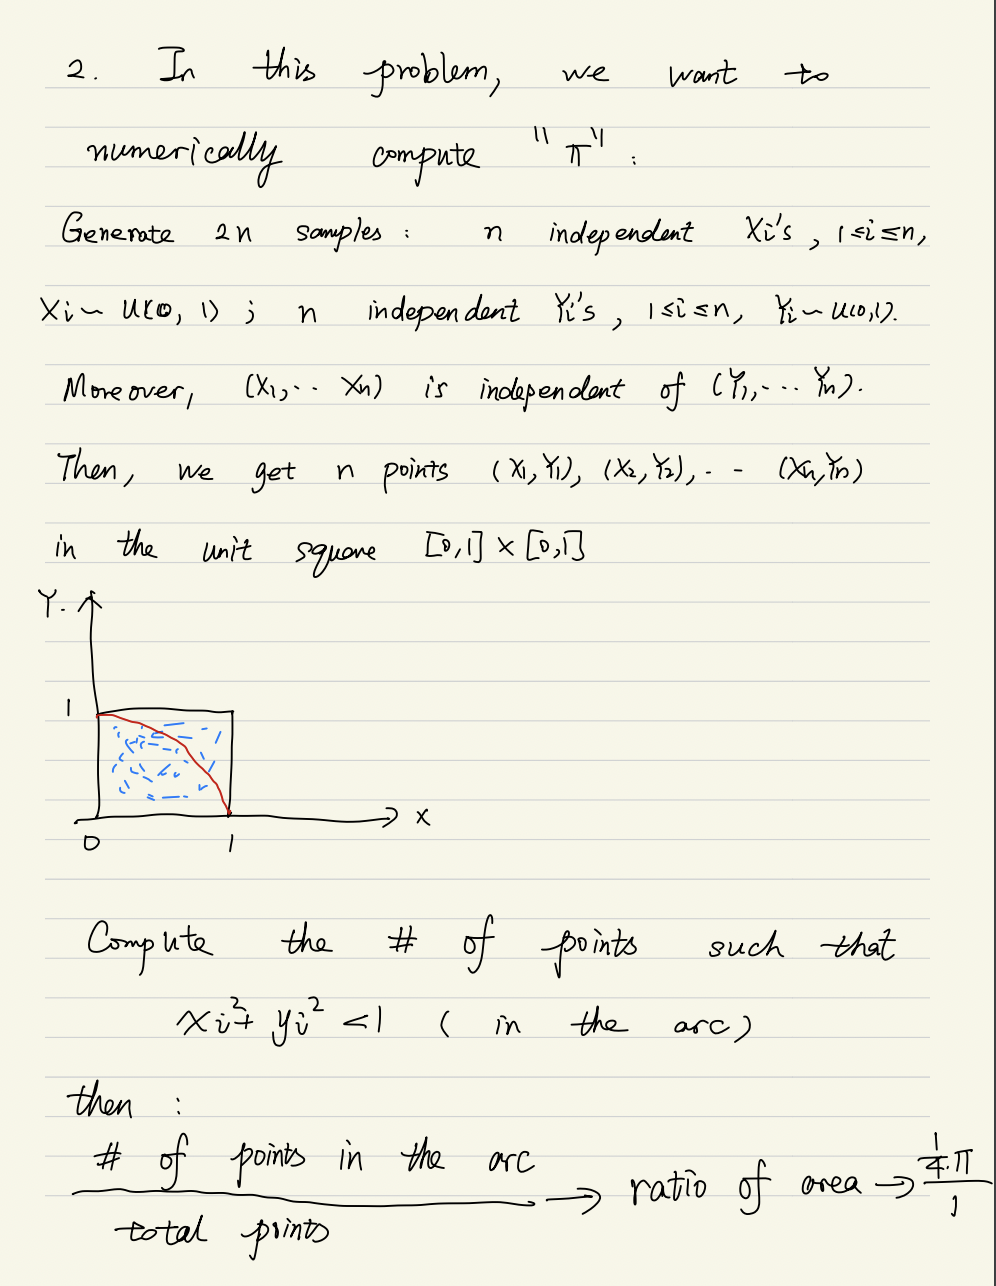 2. In this problem, we want to
numerically compute "π" :
Generate 2n samples : n independent Xi's , 1≤i≤n,
Xi ~ U(0, 1) ; n independent Yi's , 1≤i≤n, Yi ~ U(0,1).
Moreover, (X1,.. Xn) is independent of (Y1,... Yn).
Then, we get n points (X1,Y1), (X2,Y2),.. - (Xn,Yn)
in the unit square [0,1] × [0,1]
Y.
1
X
0 1
Compute the # of points such that
Xi²+ yi² <1 ( in the arc)
then :
# of points in the arc / total points → ratio of area → 1/4.π / 1